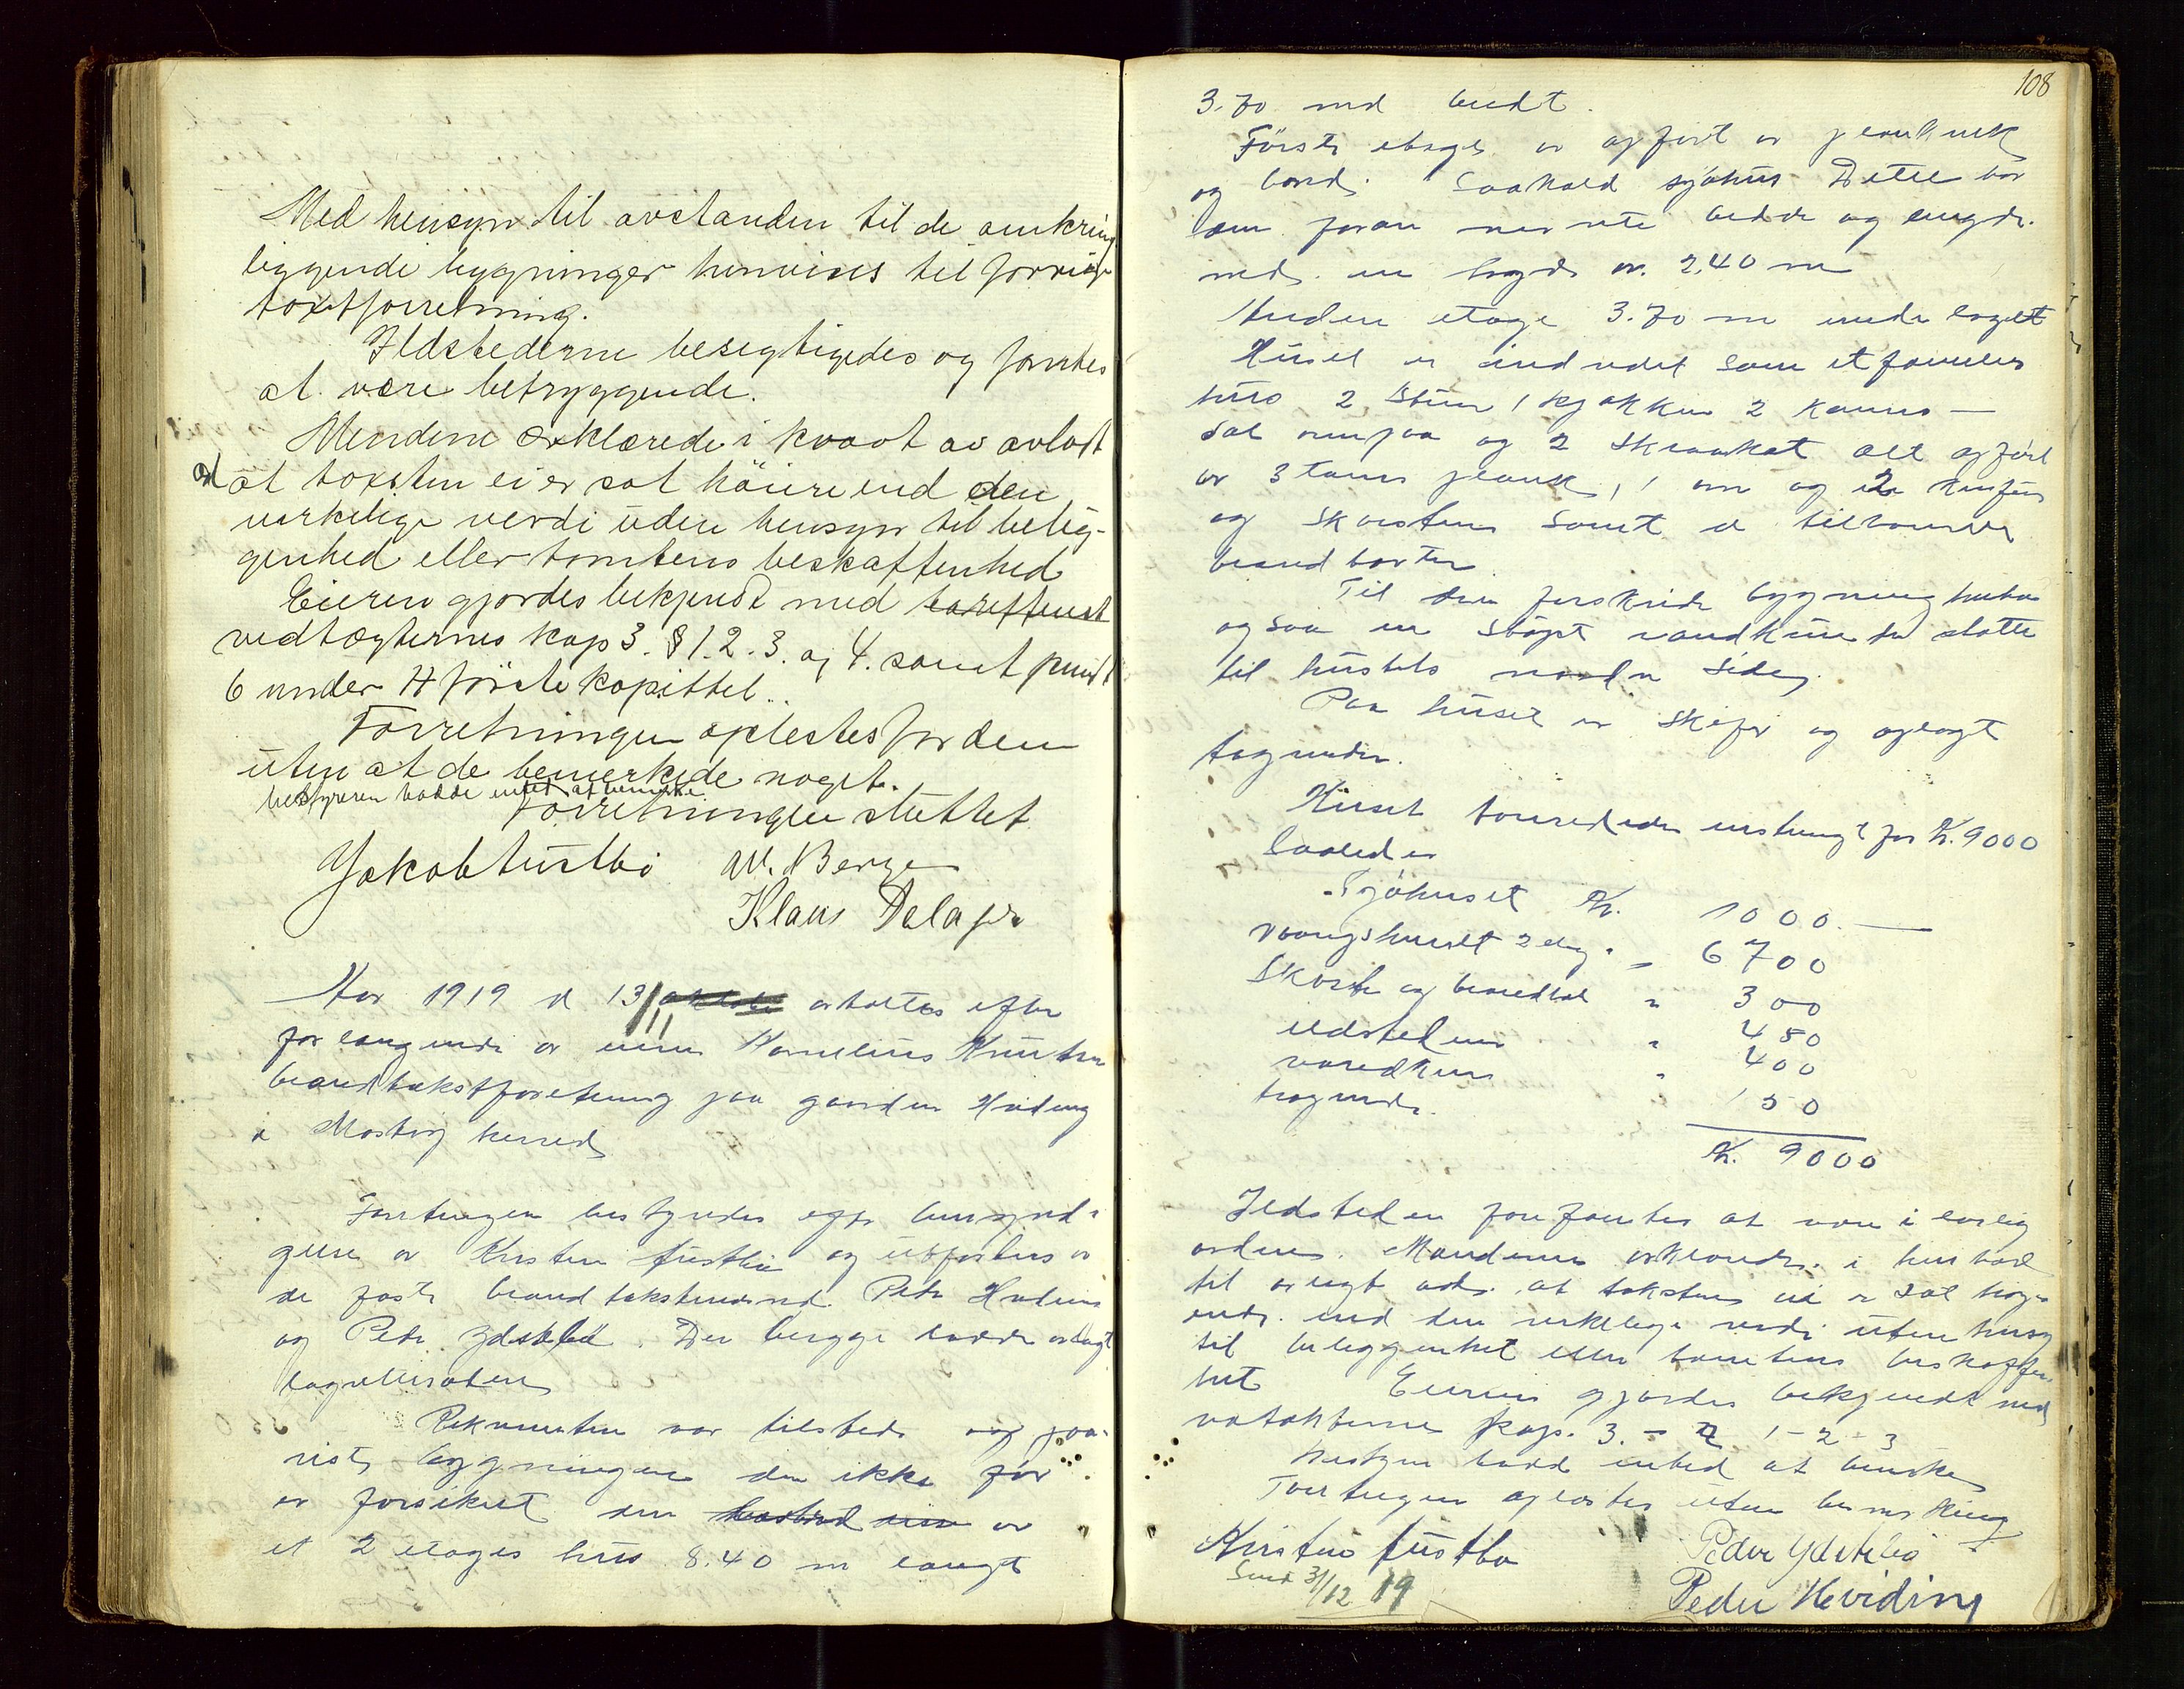 Med hensyn til avstanden til de omkring
liggende bygninger henvises til forrige
taxtforretning.
Ildstederne besegtigedes og fandtes
at være betryggende.
Mendene erklærede i kraft av avlagt
ed at taxsten ei er sat höiere end den
virkelige verdi uden hensyn til belig-
genhed eller tomtens beskaffenhed
Eieren gjordes bekjendt med
vedtægternes kap 3. § 1. 2. 3. og 4. samt punkt
6 under förste kapittel.
Forretningen oplestes for dem
uten at de bemerkede noget.
bestyreren hadde intet at bemerke
Forretningen sluttet
Jakob Tustbö W. Berge
Klaus Dalasen
Aar 1919 d 13/11 avholttes efter
forlangende av eieren Kornelius Knutsen
brandtakstforretning paa gaarden Hviding
i Mosterø herred
Forretningen bestyredes efter bemynd-
gelse av Kristen Tustbö og utførtes av
de faste brandtakstmænd Peder Hviding
og Peder Ydstebö. Der begge hadde avlagt
lagrettesseden
Rekvirenten var tilstede og paa-
viste bygningen den ikke før
er forsikret den er
et 2 etages hus 8.40 m langt
108
3.70 m bredt.
Förste etage er opført av plankverk
og bord. Saakald sjøhus Dette har
som foran nevnte bredde og lengde.
med en høgde av. 2.40 m
Anden etage 3.70 m
Huset er indredet som et familie
hus 2 Stuer 1 kjøkken 2 kamers —
Sal ovenpaa og 2 Skraakot alt opført
av 3 toms plank, 1 ovn og 2 komfur
og Skorsten samt d tilhørende
brandbotten
Til den forskrevne bygning hører
ogsaa en støpt vandkum der støtte
til husets nordre side.
Paa huset er skifer og oplagt
tagrender.
Huset toxeredes enstemigt for Kr. 9000
saaledes
Sjöhuset Kr. 1000. —
vaaningshuset 2 etag. " 6700
Skorsten og brandbot " 300
Ildstederne " 450
vandkum " 400
tagrender. 150
Kr. 9000
Ildstederne forefantes at være i lovlig
orden. Mændene erklærede i henhold
til avlagt ed. at taksten ei er sat høi-
ere. end den virkelige verdi uten hensyn
til beliggenhet eller tomtens beskaffen-
het Eieren gjordes bekjendt med
vetekterne kap. 3. - § 1 - 2 - 3
Bestyrer hadde intet at bemerke
Forretningen oplæstes uten bemerkning
Kristen Tustbø Peder Ydstebö
Send 31/12 19
Peder Hviding